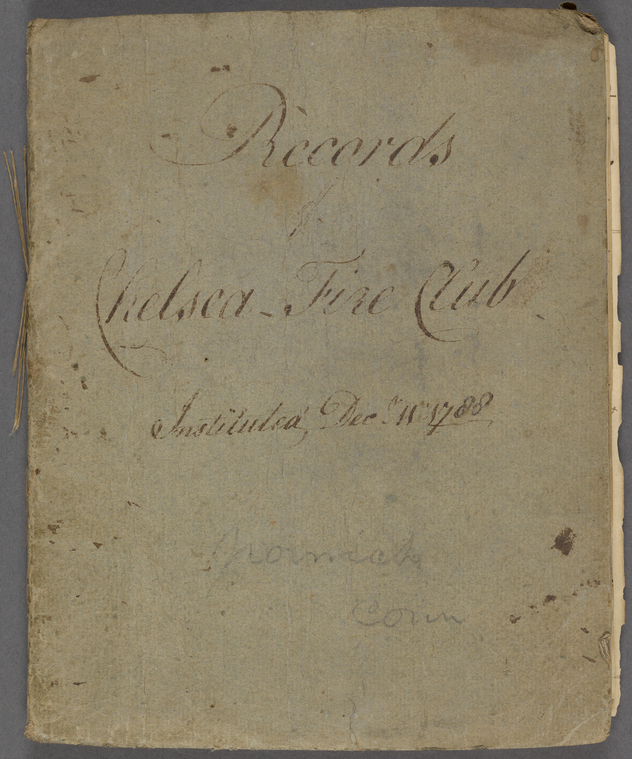 Records
of
Chelsea - Fire Club
Instituted, Decr. 11th 1788
Norwich
Conn